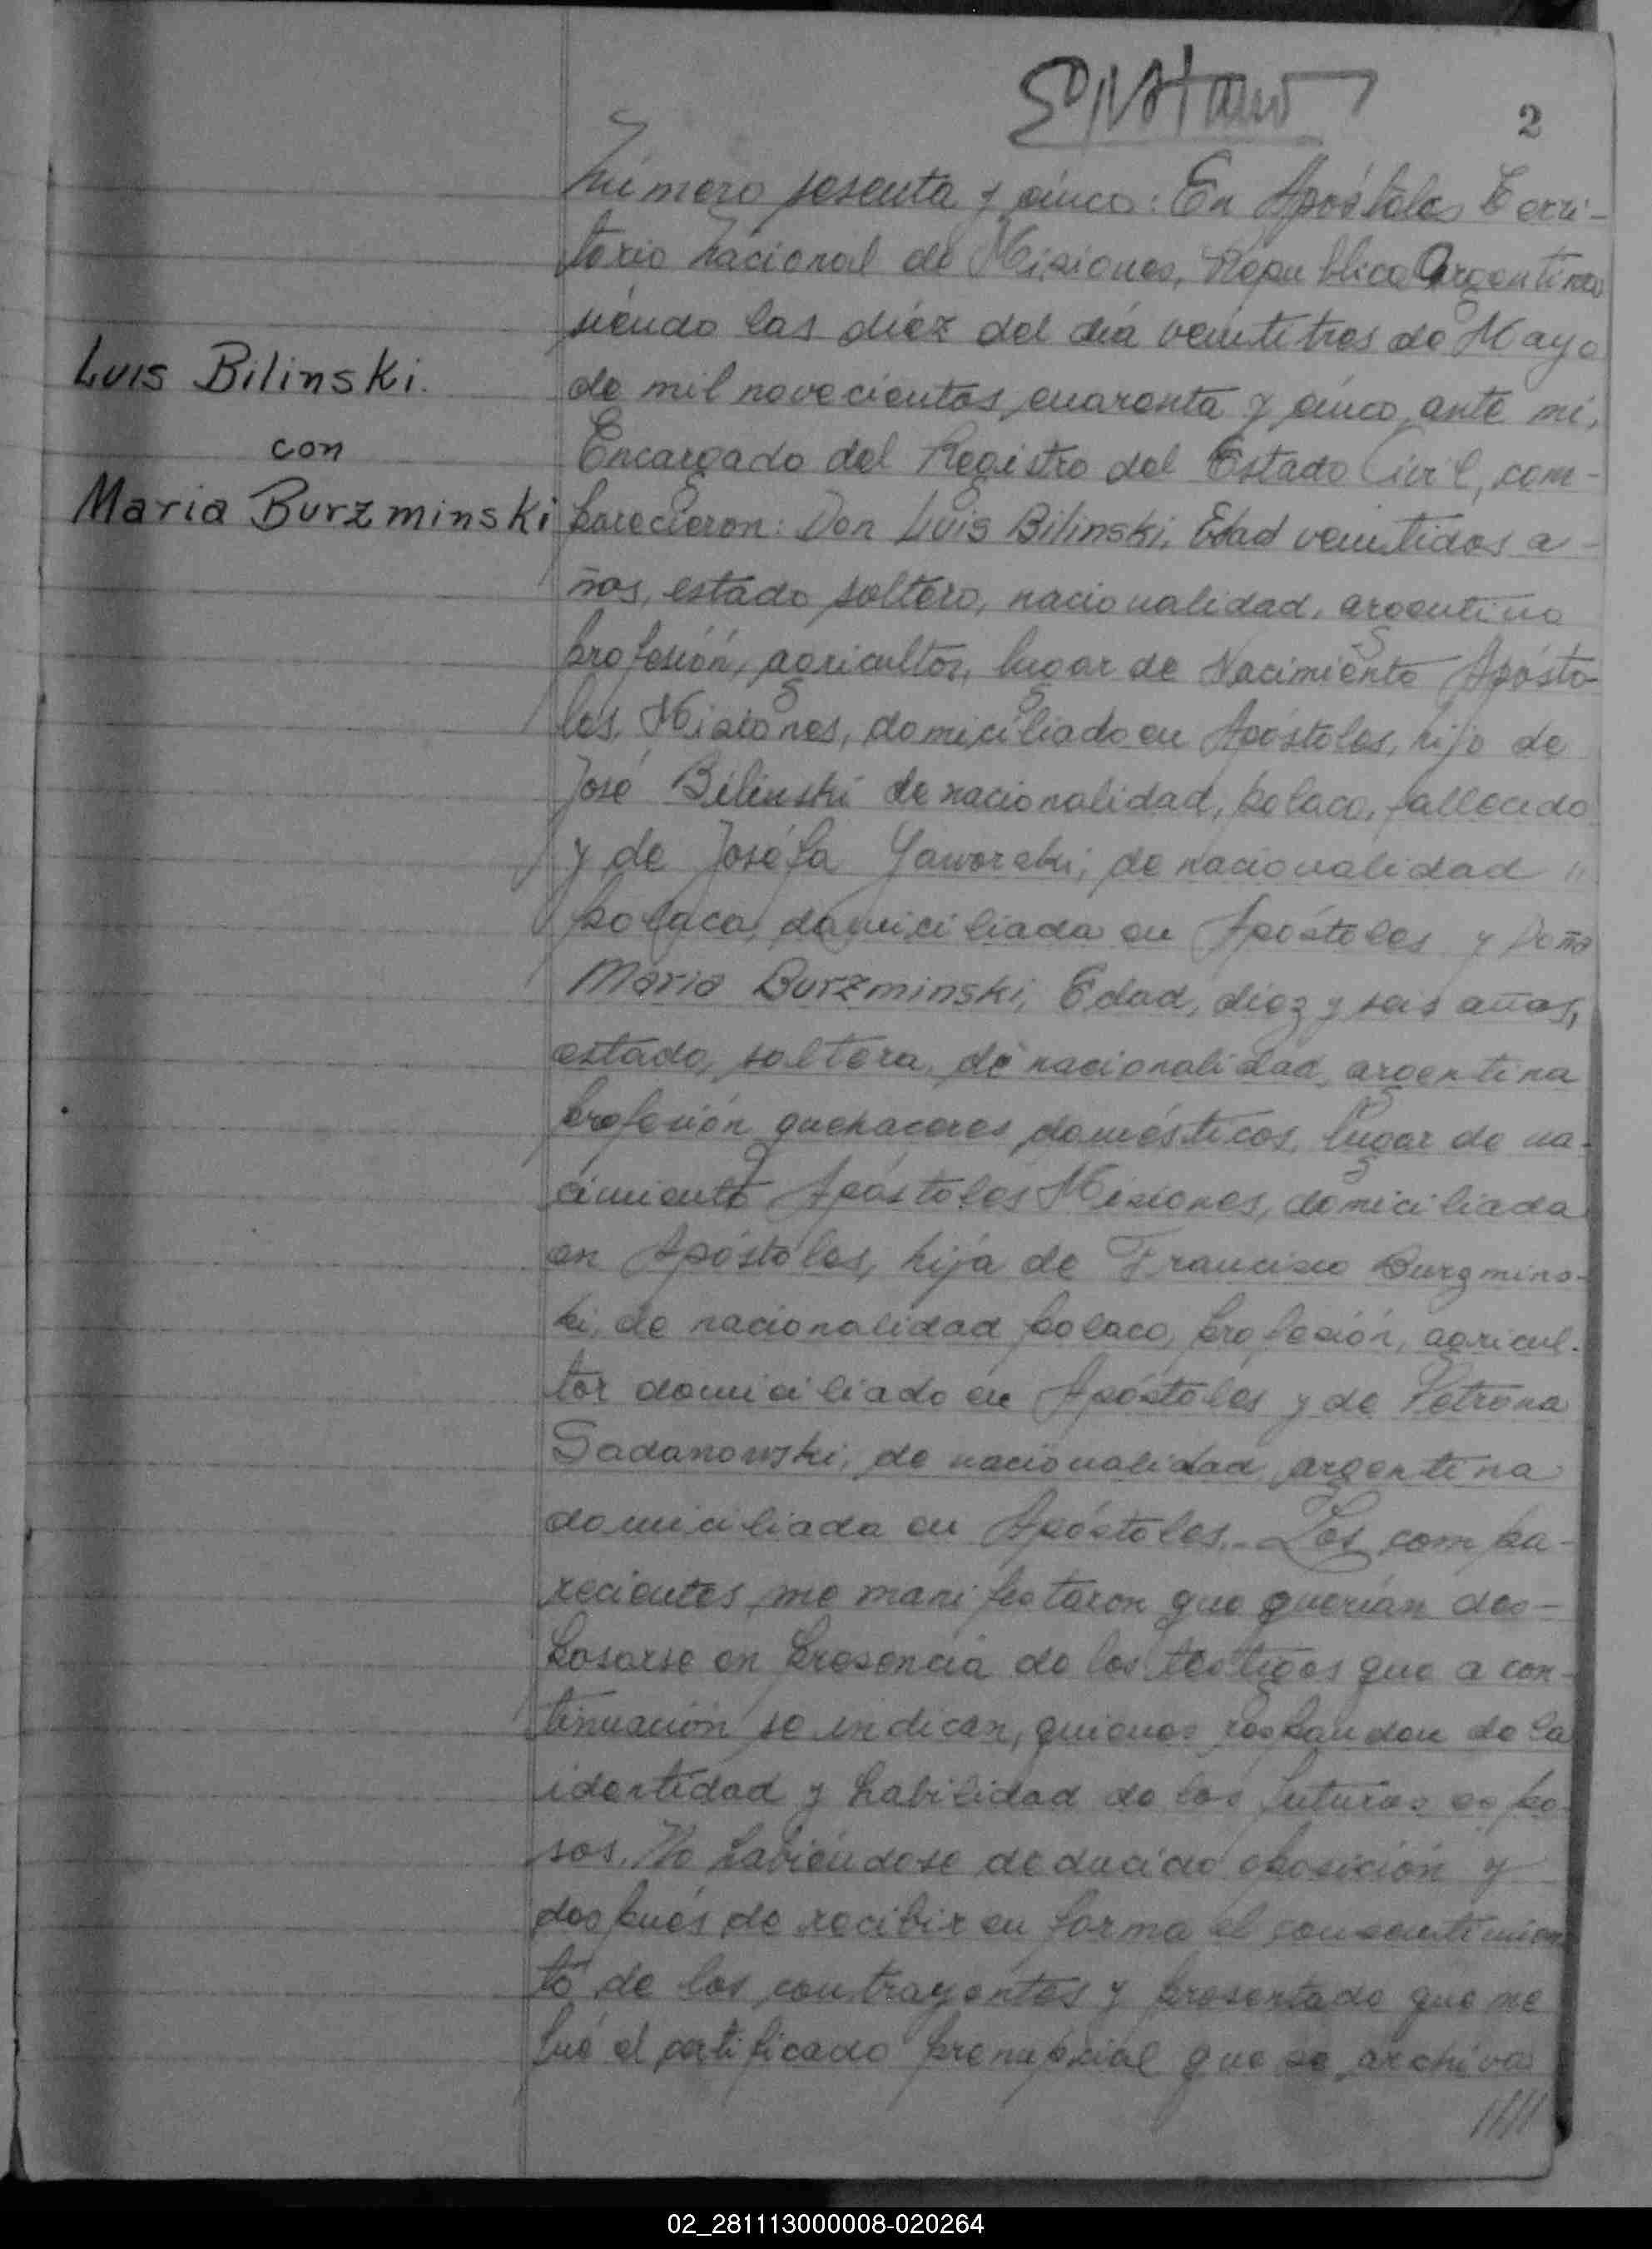 2
Número sesenta y cinco: En Apóstoles Terri-
torio Nacional de Misiones, República Argentina
siendo las diéz del día veintitres de Mayo
de mil novecientos cuarenta y cinco, ante mí,
Encargado del Registro del Estado Civil, com-
parecieron: Don Luis Bilinski, Edad veintidos a-
ños, estado soltero, nacionalidad, argentino
profesión, agricultor, lugar de Nacimiento Apósto-
les, Misiones, domiciliado en Apóstoles, hijo de
José Bilinski de nacionalidad, polaco, fallecido
y de Joséfa Jaworski, de nacionalidad "
polaca, domiciliada en Apóstoles y Doña
Maria Burzminski, Edad, diez y seis años,
estado, soltera, de nacionalidad, argentina
profesión quehaceres domésticos, lugar de na-
cimiento Apóstoles Misiones, domiciliada
en Apóstoles, hija de Francisco Burzmins-
ki, de nacionalidad polaco, profesión, agricul-
tor domiciliado en Apóstoles y de Petrona
Sadanowski, de nacionalidad argentina
domiciliada en Apóstoles.- Los compa-
recientes me manifestaron que querían des-
posarse en presencia de los testigos que a con-
tinuación se indican, quienes responden de la
identidad y habilidad de los futuros espo-
sos. No habiéndose deducido oposición y
después de recibir en forma el consentimien
to de los contrayentes y presentado que me
fué el certificado prenupcial que se archiva
////
Luis Bilinski.
con
Maria Burzminski
02_281113000008-020264